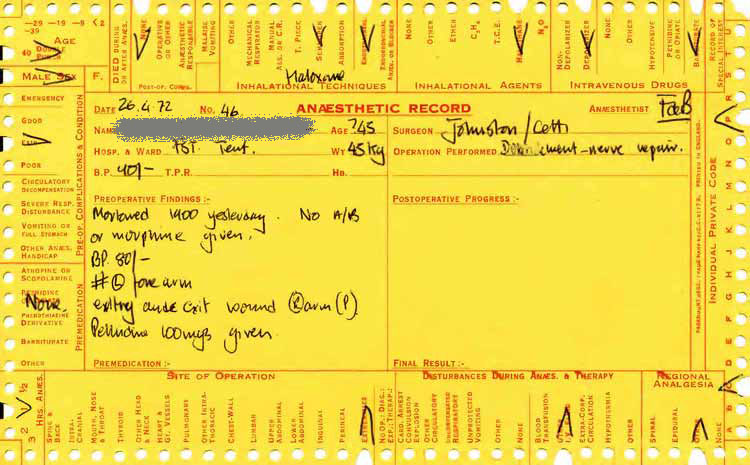 -29 -19 -9 <2
-39
40 AGE
MALE SEX F.
DIED DURING OR AFTER ANÆS.
NONE
OPERATIVE OR OTHER
ANÆSTHETIC RESPONSIBLE
MALAISE VOMITING
OTHER
POST-OP. COMPS.
MECHANICAL RESPIRATOR
MANUAL ASS. OR C.R.
T. PIECE
ABSORPTION
ENDOTRACHEAL
NONE
INHALATIONAL TECHNIQUES
OTHER
ETHER
C₃H₆
T.C.E.
HALOTHANE
N₂O
INHALATIONAL AGENTS
NON-DEPOLARIZER
DEPOLARIZER
NONE
OTHER
HYPOTENSIVE
PETHIDINE OR OPIATE
BARBITURATE
INTRAVENOUS DRUGS
RECORD OF SPECIAL INTEREST
Haloxane
DATE 26.4.72 No. 46 ANÆSTHETIC RECORD ANÆSTHETIST
NAME AGE ?45 SURGEON Johnston/
HOSP. & WARD Tent. WT 45 kg OPERATION PERFORMED nerve repair.
B.P. 40/- T.P.R. HB.
PREOPERATIVE FINDINGS:- POSTOPERATIVE PROGRESS:-
1400 yesterday. No A/B
or morphine given.
BP. 80/-
# (L) forearm
entry and exit wound (R) arm (P).
Pethidine 100mgs given.
PREMEDICATION:- FINAL RESULT:-
EMERGENCY
GOOD
FAIR
POOR
CIRCULATORY DECOMPENSATION
SEVERE RESP. DISTURBANCE
VOMITING OR FULL STOMACH
OTHER ANÆS. HANDICAP
PRE-OP. COMPLICATIONS & CONDITION
ATROPINE OR SCOPOLAMINE
None
PHENOTHIAZINE DERIVATIVE
BARBITURATE
OTHER
PREMEDICATION
PRINTED IN ENGLAND.
INDIVIDUAL PRIVATE CODE
HRS. ANÆS.
½
2
3
SITE OF OPERATION
SPINE & BACK
INTRA-CRANIAL
MOUTH, NOSE & THROAT
THYROID
OTHER HEAD & NECK
HEART & GT. VESSELS
PULMONARY
OTHER INTRA-THORACIC
CHEST-WALL
LUMBAR
UPPER ABDOMINAL
LOWER ABDOMINAL
INGUINAL
PERINEAL
EXTREMITIES
DISTURBANCES DURING ANÆS. & THERAPY
CARD. ARREST CONVULSION EXPLOSION
OTHER CIRCULATORY
UNPROTECTED VOMITING
OTHER
NONE
BLOOD TRANSFUSION
EXTRA-CORP. CIRCULATION
HYPOTHERMIA
OTHER
REGIONAL ANALGESIA
SPINAL
EPIDURAL
NONE